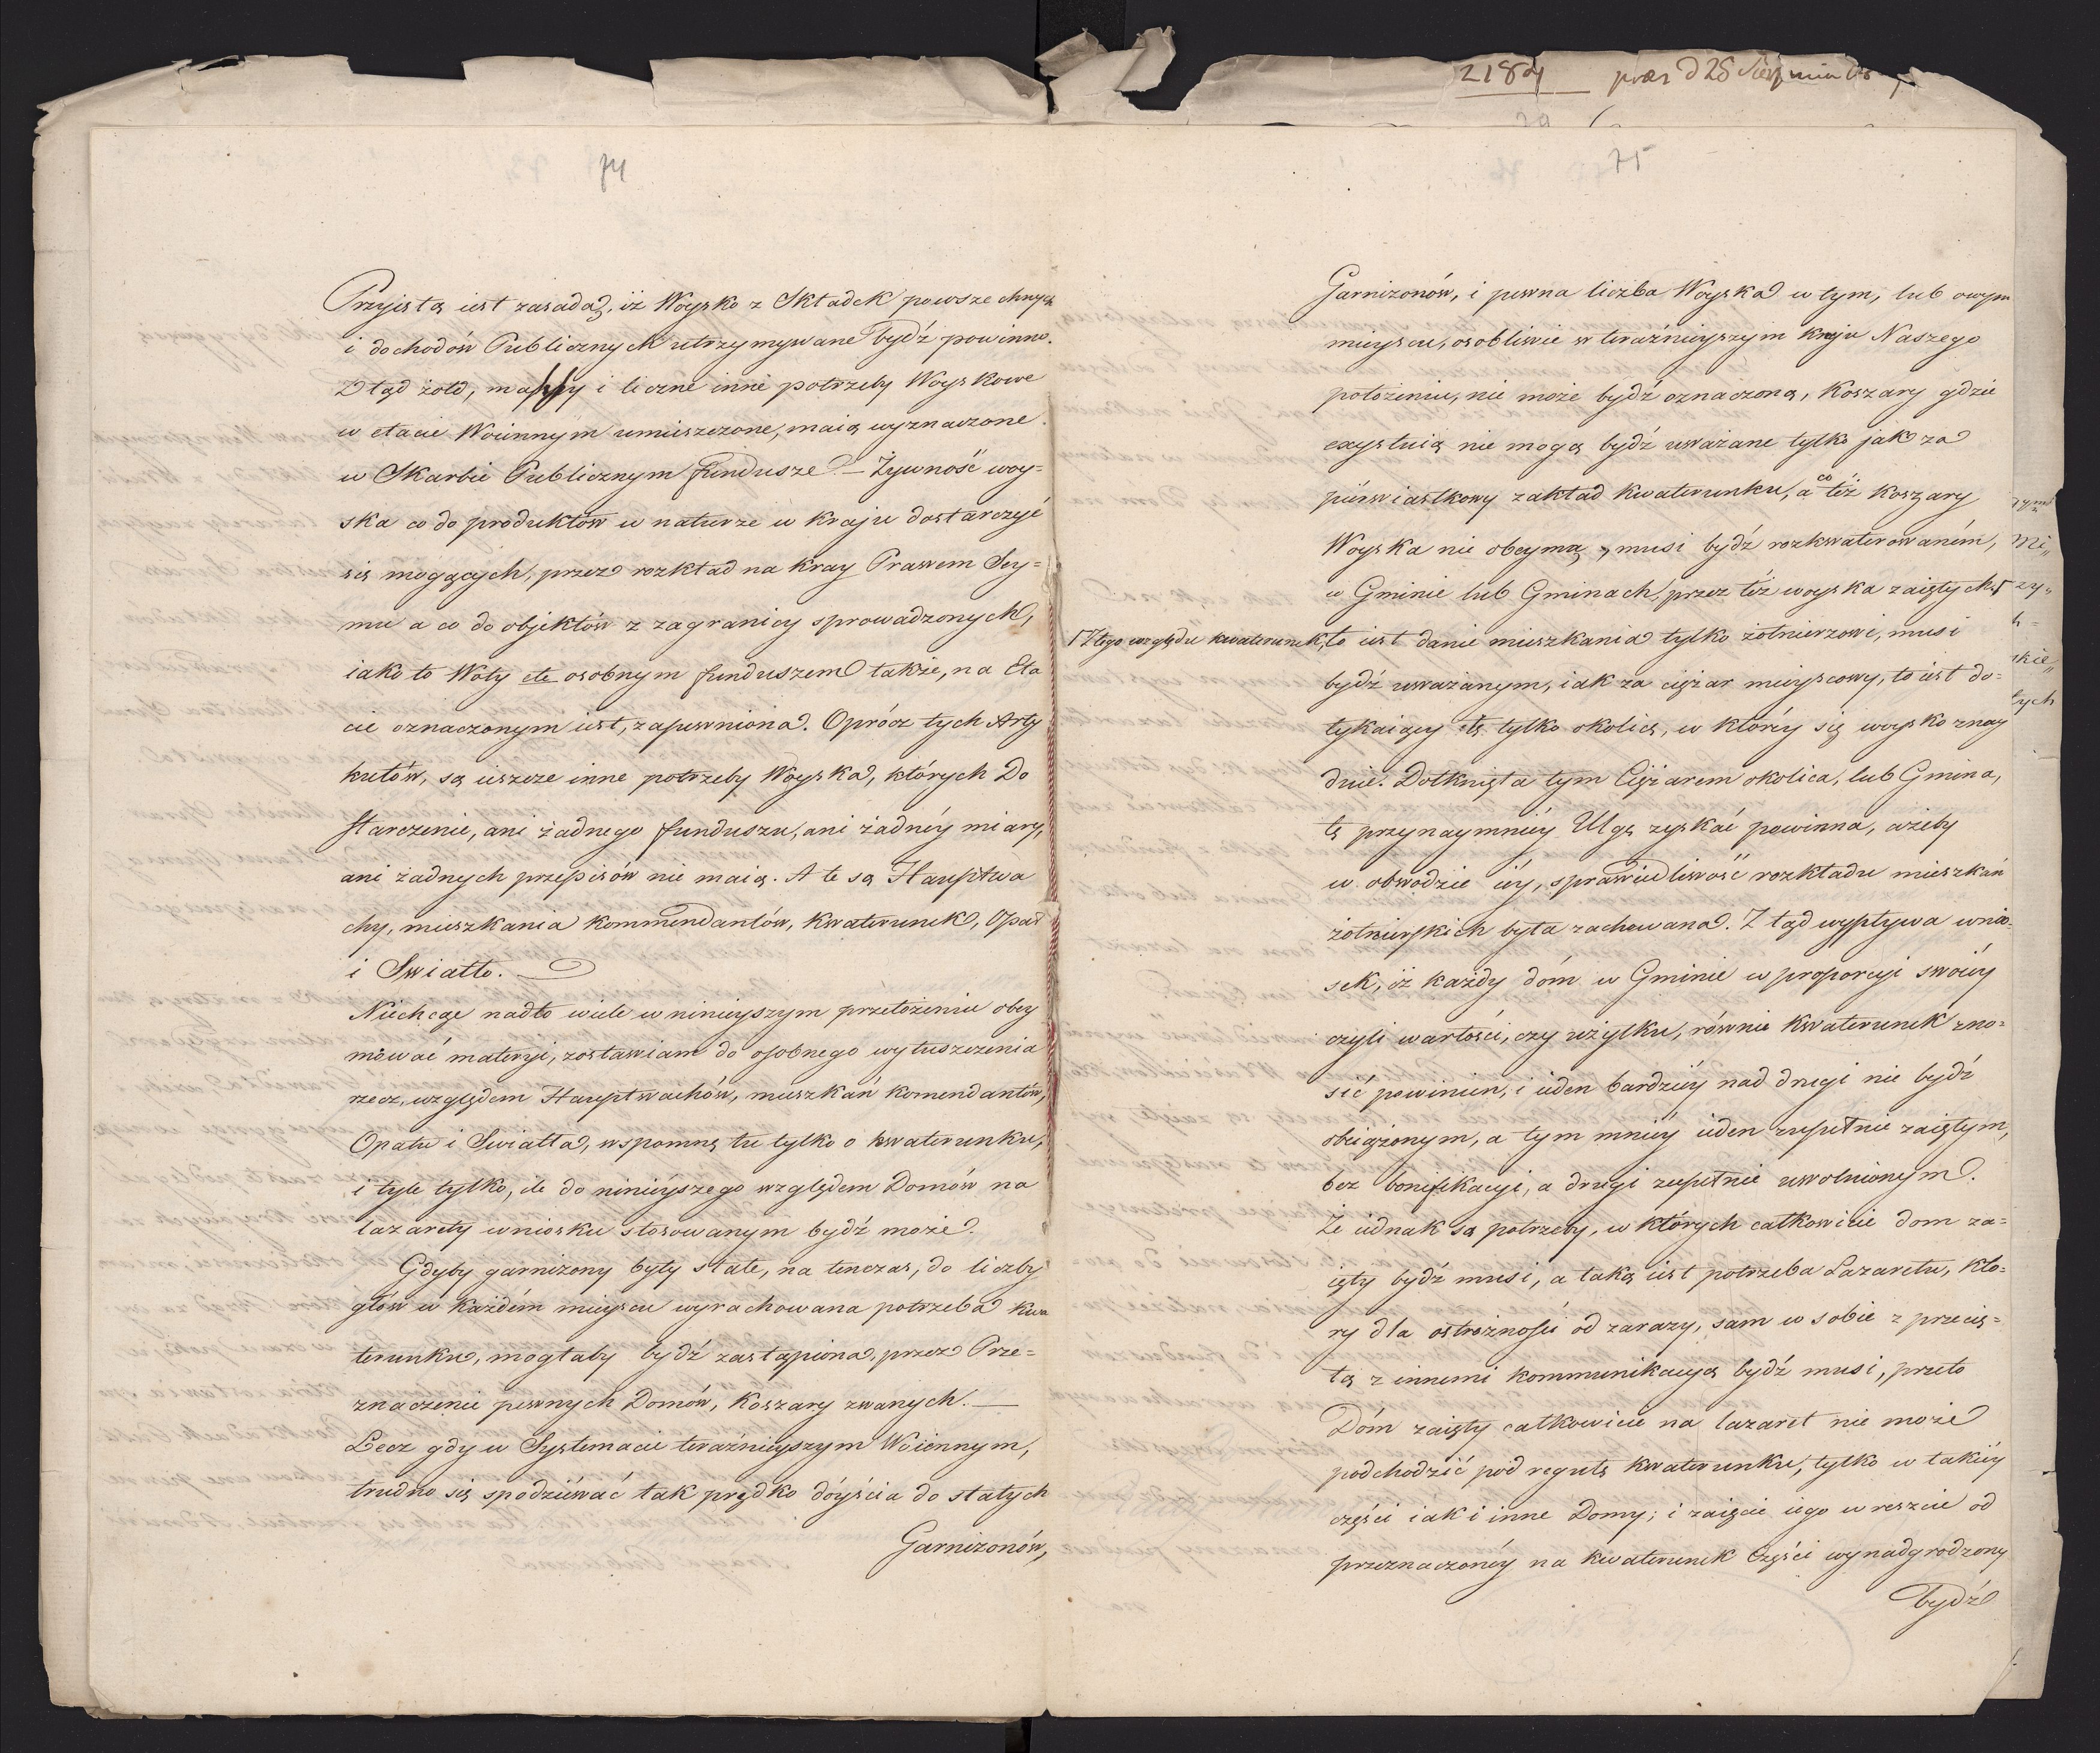 2184 præs d 28 Sierpnia
74
Przyięta iest zasada, iż Woysko z Składek powszechnych
i dochodów Publicznych utrzymywane bydź powinno.
Ztąd żołd, massy i liczne inne potrzeby Woyskowe
w etacie Woiennym umieszczone, maią wyznaczone
w Skarbie Publicznym fundusze – Żywność woy=
ska co do produktów w naturze w kraju dostarczyć
się mogących, przez rozkład na kray Prawem Sey=
mu a co do objektów z zagranicy sprowadzonych,
iako to Woły etc osobnym funduszem także, na Eta
cie oznaczonym iest, zapewniona. Oprócz tych Arty
kułów, są ieszcze inne potrzeby Woyska, których Do
starczenie, ani żadnego funduszu, ani żadnéy miary,
ani żadnych przepisów nie maią. A te są Hauptwa
chy, mieszkania kommendantów, kwaterunek, Opał
i Swiatło.
Niechcąc nadto wiele w ninieyszym przełożeniu obey
mować materyi, zostawiam do osobnego wyłuszczenia
rzecz, względem Hauptwachów, mieszkań komendantów,
Opału i Swiatła, wspomnę tu tylko o kwaterunku,
i tyle tylko, ile do ninieyszego względem Domów na
lazarety wniosku stosowanym bydź może.
Gdyby garnizony były stałe, na tenczas, do liczby
głów w każdém mieyscu wyrachowana potrzeba kwa
terunku, mogłaby bydź zastąpiona, przez Prze=
znaczenie pewnych Domów, Koszary zwanych. —
Lecz gdy w Systemacie teraźnieyszym Woiennym,
trudno się spodziéwać tak prędko dóyścia do stałych
Garnizonów,
75
Garnizonów, i pewna liczba Woyska w tym, lub owym
mieyscu, osobliwie w teraźnieyszym kraju Naszego
położeniu, nie może bydź oznaczoną, Koszary gdzie
exystuią nie mogą bydź uważane tylko jak za
piérwiastkowy zakład kwaterunku, a co téż koszary
Woyska nie obeymą, musi bydź rozkwaterowaném,
w Gminie lub Gminach, przez téż woyska zaiętych
Z tego względu kwaterunek, to iest danie mieszkania tylko żołnierzowi, musi
bydź uważanym, iak za ciężar mieyscowy, to iest do=
tykaiący tę tylko okolicę, w któréy się woysko znay
duie. Dotknięta tym Ciężarem okolica, lub Gmina,
tę przynaymniéy Ulgę zyskać powinna, ażeby
w obwodzie iéy, sprawiedliwość rozkładu mieszkań
żołnierskich była zachowana. Z tąd wypływa wnio=
sek, iż każdy dóm w Gminie w proporcyi swoiéy
czyli wartości, czy użytku, równie kwaterunek zno=
sić powinien, i ieden bardziéy nad drugi nie bydź
obciążonym, a tym mniéy ieden zupełnie zaiętym,
bez bonifikacyi, a drugi zupełnie uwolnionym.
Że iednak są potrzeby, w których całkowicie dom za=
ięty bydź musi, a taką iest potrzeba Lazaretu, któ=
ry dla ostrożności od zarazy, sam w sobie z przecię=
tą z innemi kommunikacyą bydź musi, przeto
Dóm zaięty całkowicie na lazaret nie może
podchodzić pod regułę kwaterunku, tylko w takiéy
części iak i inne Domy; i zaięcie iego w reszcie od
przeznaczonéy na kwaterunek Części wynadgrodzony
bydź